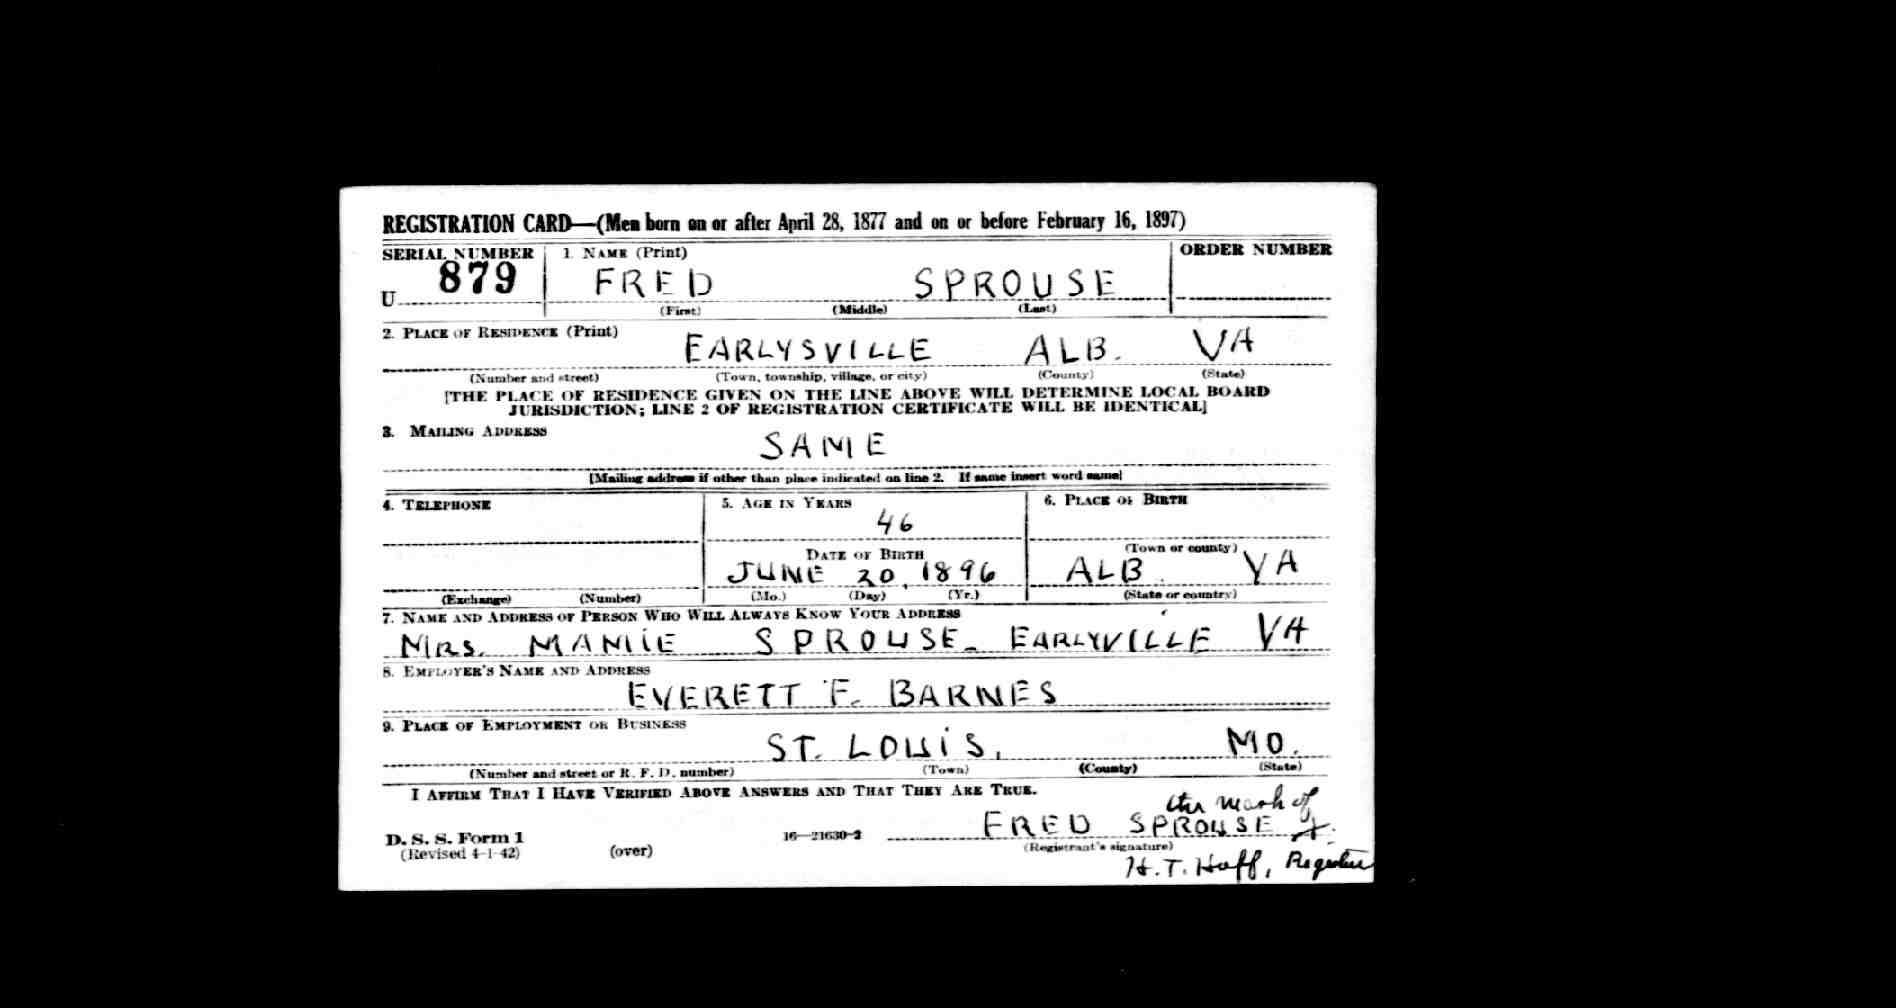 REGISTRATION CARD—(Men born on or after April 28, 1877 and on or before February 16, 1897)
SERIAL NUMBER 1. NAME (Print) ORDER NUMBER
U 879 FRED SPROUSE
(First) (Middle) (Last)
2. PLACE OF RESIDENCE (Print)
EARLYSVILLE ALB. VA
(Number and street) (Town, township, village, or city) (County) (State)
[THE PLACE OF RESIDENCE GIVEN ON THE LINE ABOVE WILL DETERMINE LOCAL BOARD
JURISDICTION; LINE 2 OF REGISTRATION CERTIFICATE WILL BE IDENTICAL]
3. MAILING ADDRESS
SAME
[Mailing address if other than place indicated on line 2. If same insert word same]
4. TELEPHONE 5. AGE IN YEARS 6. PLACE OF BIRTH
46
DATE OF BIRTH (Town or county)
JUNE 20, 1896 ALB. VA
(Exchange) (Number) (Mo.) (Day) (Yr.) (State or country)
7. NAME AND ADDRESS OF PERSON WHO WILL ALWAYS KNOW YOUR ADDRESS
MRS. MAMIE SPROUSE - EARLYVILLE VA
8. EMPLOYER'S NAME AND ADDRESS
EVERETT F. BARNES
9. PLACE OF EMPLOYMENT OR BUSINESS
ST. LOUIS, MO.
(Number and street or R. F. D. number) (Town) (County) (State)
I AFFIRM THAT I HAVE VERIFIED ABOVE ANSWERS AND THAT THEY ARE TRUE.
mark of
FRED SPROUSE X
D. S. S. Form 1 16—21630-2 (Registrant's signature)
(Revised 4-1-42) (over)
H. T. Huff, Registrar